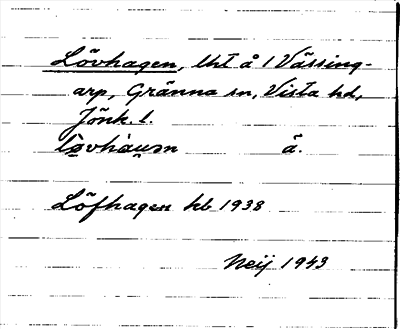 Lövhagen, lht å 1 Vässing-
arp, Gränna sn, Vista hd,
Jönk. l.
å.
Löfhagen kb 1938
Neij 1943